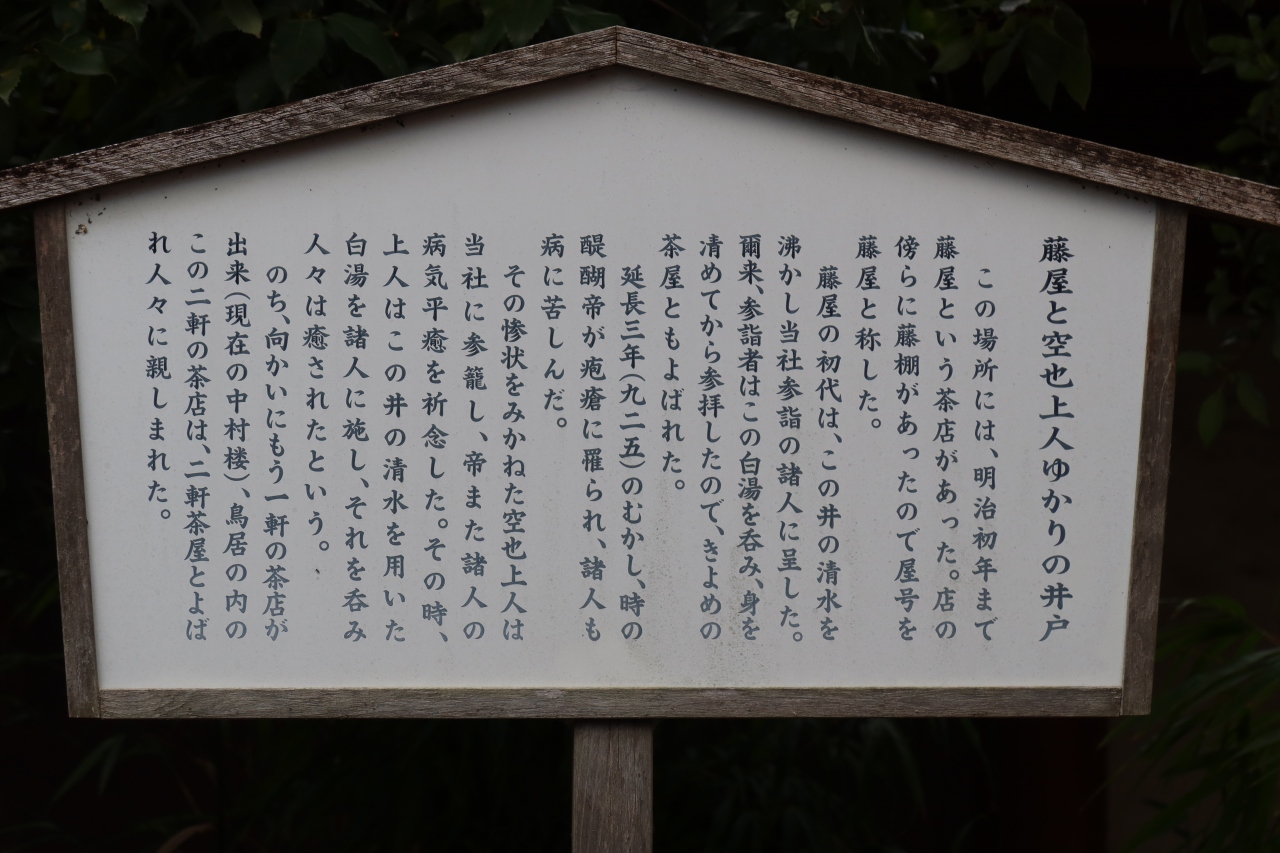 藤屋と空也上人ゆかりの井戸
この場所には、明治初年まで
藤屋という茶店があった。店の
傍らに藤棚があったので屋号を
藤屋と称した。
藤屋の初代は、この井の清水を
沸かし当社参詣の諸人に呈した。
爾来、参詣者はこの白湯を呑み、身を
清めてから参拝したので、きよめの
茶屋ともよばれた。
延長三年(九二五)のむかし、時の
醍醐帝が疱瘡に罹られ、諸人も
病に苦しんだ。
その惨状をみかねた空也上人は
当社に参籠し、帝また諸人の
病気平癒を祈念した。その時、
上人はこの井の清水を用いた
白湯を諸人に施し、それを呑み
人々は癒されたという。
のち、向かいにもう一軒の茶店が
出来(現在の中村楼)、鳥居の内の
この二軒の茶店は、二軒茶屋とよば
れ人々に親しまれた。